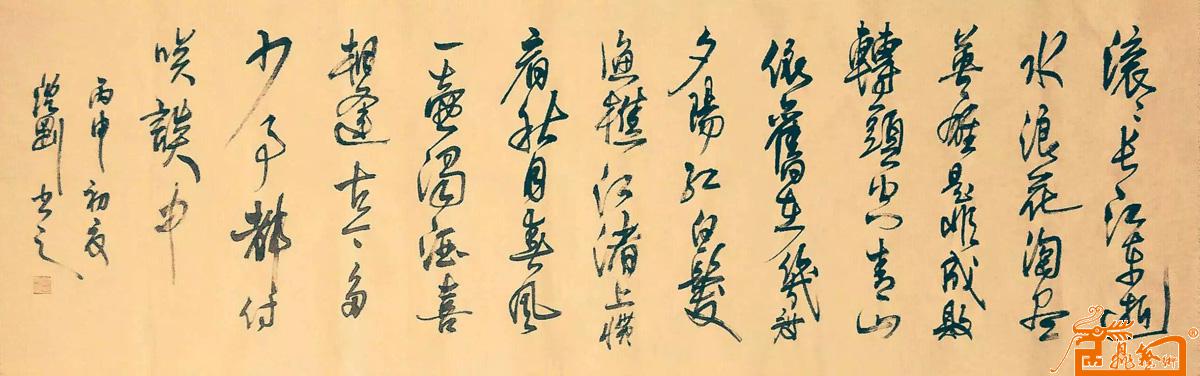 滚々长江东逝
水浪花淘尽
英雄是非成败
轉頭空青山
依舊在幾度
夕陽红白髮
渔樵江渚上惯
看秋月春风
一壶濁酒喜
相逢古今多
少事都付
笑談中
丙申初夏
书之